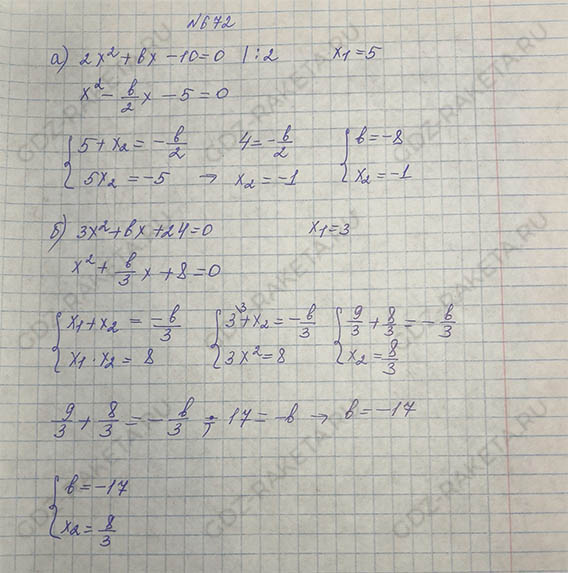 №672
а) 2x² + bx - 10 = 0 | : 2 x₁ = 5
x² - b/2 x - 5 = 0
{ 5 + x₂ = - b/2 4 = - b/2 { b = -8
{ 5x₂ = -5 → x₂ = -1 { x₂ = -1
б) 3x² + bx + 24 = 0 x₁ = 3
x² + b/3 x + 8 = 0
{ x₁ + x₂ = -b/3 { 3\³ + x₂ = - b/3 { 9/3 + 8/3 = - b/3
{ x₁ · x₂ = 8 { 3x² = 8 { x₂ = 8/3
9/3 + 8/3 = - b/3 17 = -b → b = -17
{ b = -17
{ x₂ = 8/3
GDZ-RAKETA.RU